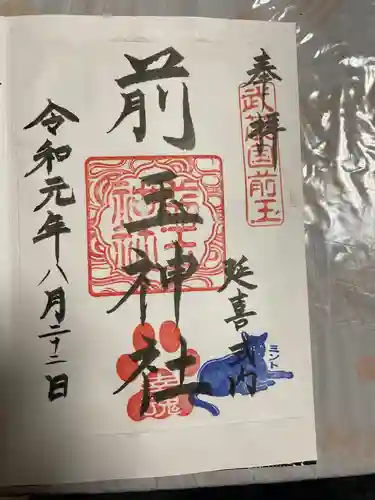 奉拝
武蔵国前玉
延喜式内
ミント
前玉神社
令和元年八月二十二日